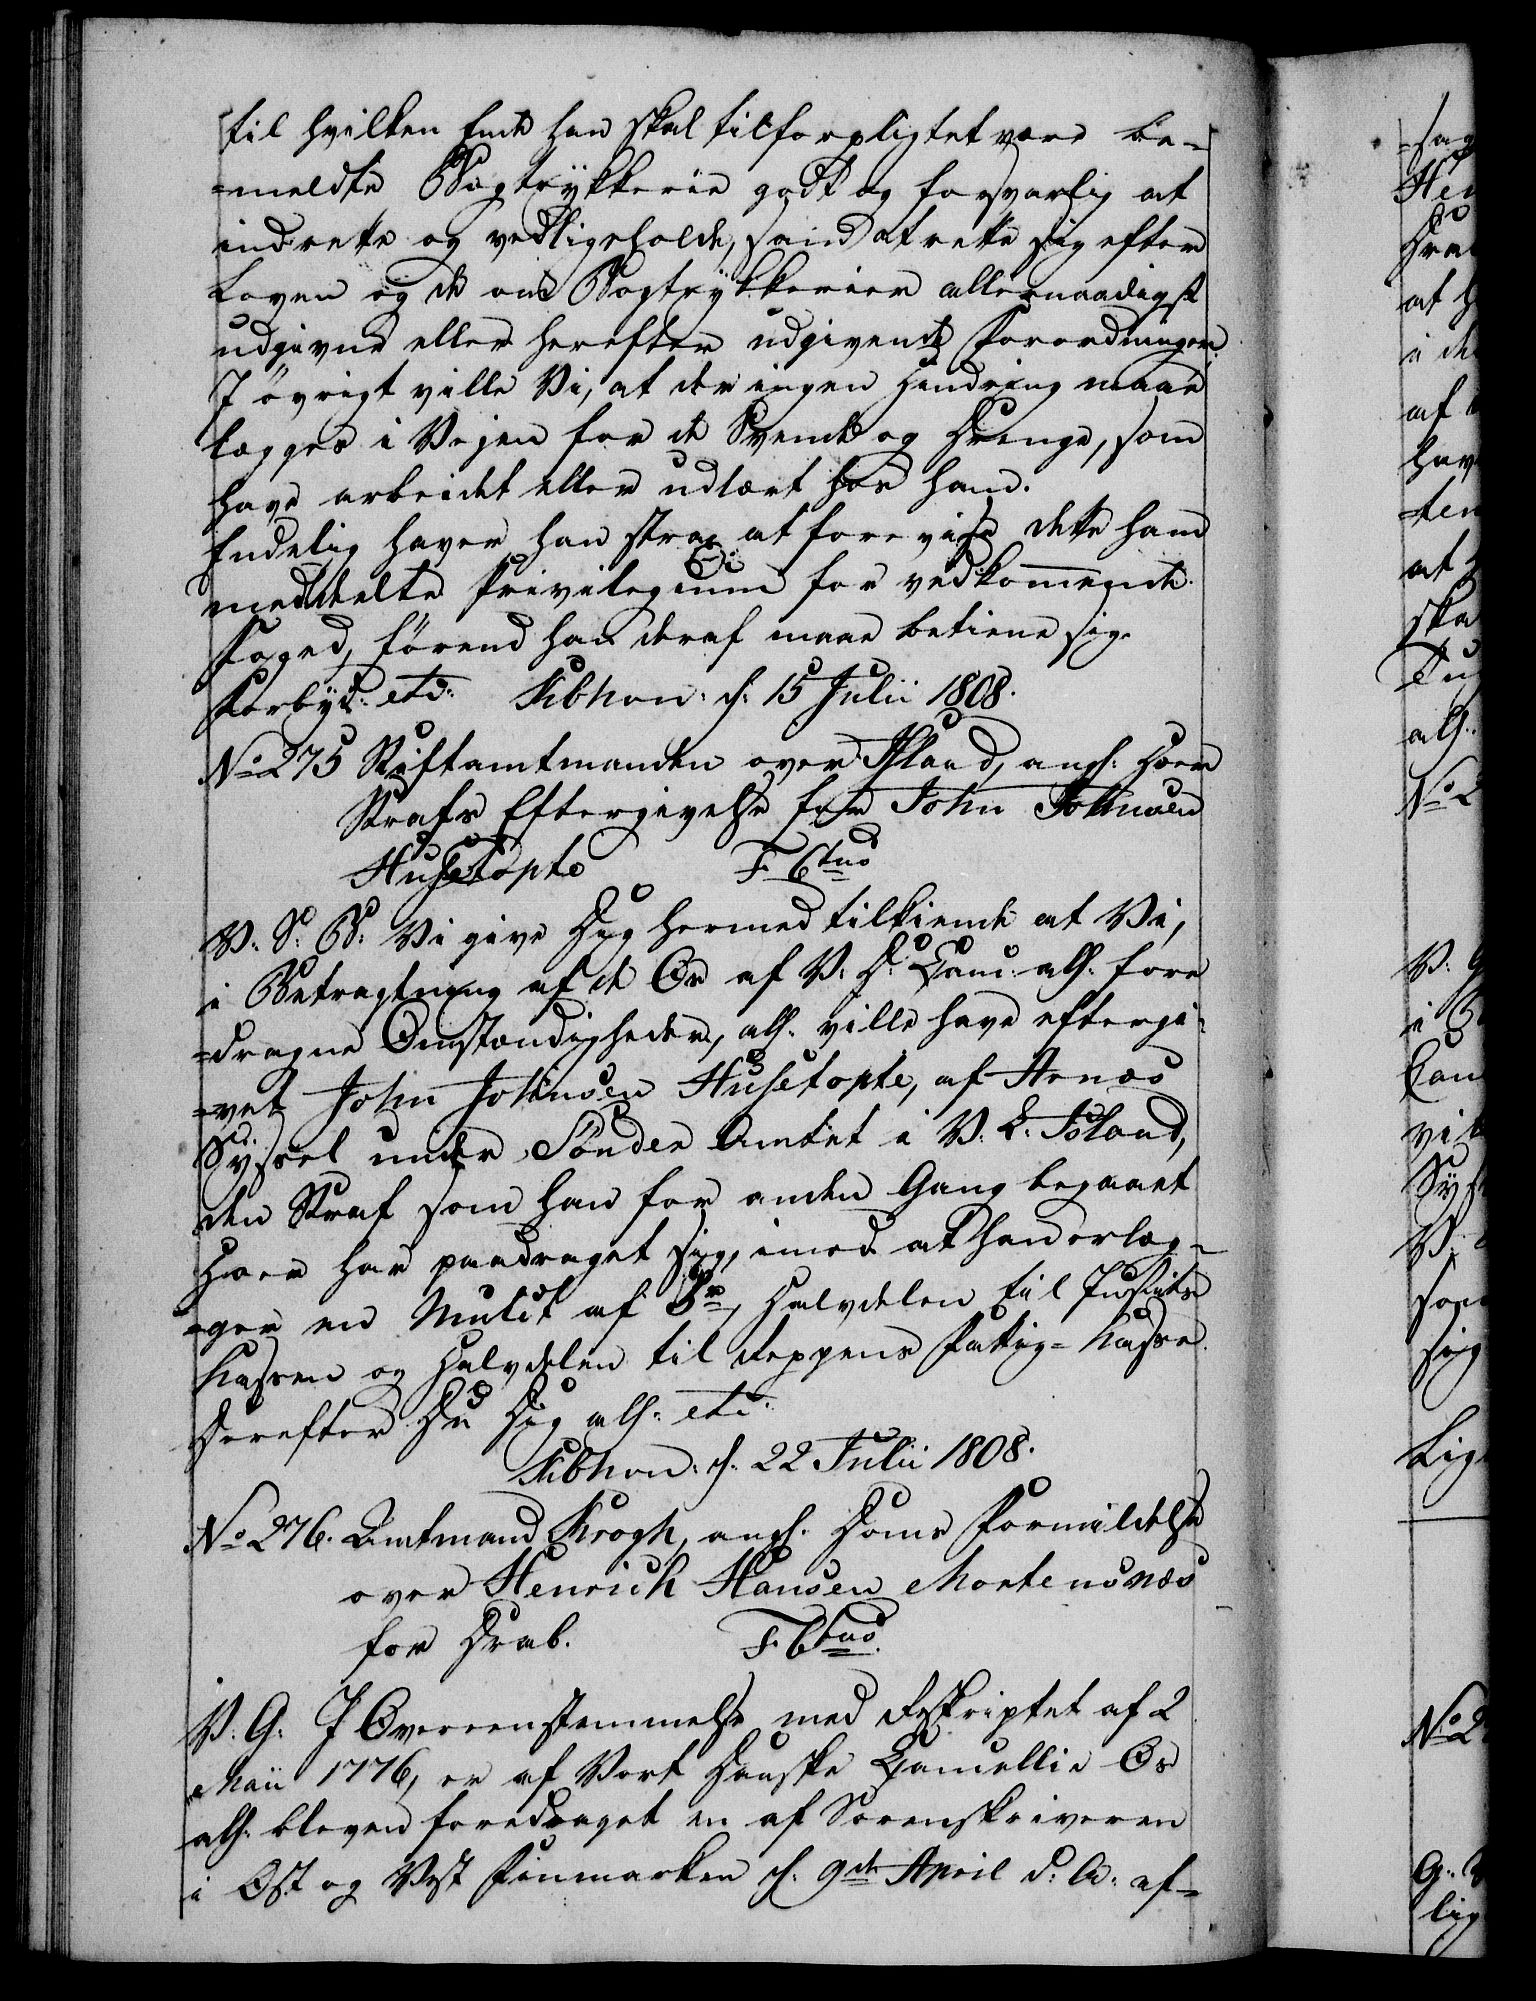 til hvilken Ende han skal tilforpligtet være be-
=meldte Bogtrykkerie godt og forsvarlig at
indrette og vedligeholde, samt at rette sig efter
Loven og de om Bogtrykkerier allernaadigst
udgivne eller herefter udgivende Forordninger.
I øvrigt ville Vi, at der ingen Hindring maae
lægges i Vejen for de Svende og Drenge, som
have arbeidet eller udlært hos ham.
Endelig haver han strax at forevise dette ham
meddelte Privilegium for vedkommende
Foged, førend han deraf maae betiene sig.
Forbyd: etc: Kibhvn: d: 15 Julii 1808.
No 275 Stiftamtmanden over Island, angd: Hoers
Strafs Eftergivelse for John Johnsen
Husetopte F. 6tus
V. S. B: Vi give Dig hermed tilkiende at Vi,
i Betragtning af de Os af V: D: Canc: alld: fore
=dragne Omstændigheder, alld: ville have eftergi-
=vet John Johnsen Husetopte, af Arnæs
Syssel under Sønder Amtet i V. L. Island,
den Straf som han for anden Gang begaaet
Hoer har paadraget sig, imod at han erlæg-
=ger en Mulct af 5 rd, Halvdelen til Justits
Kassen og Halvdelen til Reppens Fattig=Kasse.
Derefter Du Dig alld: etc:
Kibhvn: d: 22 Julii 1808.
No 276. Amtmand Krogh, angd: Doms Formildelse
over Henrich Hansen Mortensnæs
for Drab. F. 6tus.
V. G: I Overeenstemmelse med Reskriptet af 2
Maii 1776, er af Vort Danske Cancellie Os
alld: bleven foredraget en af Sorenskriveren
i Øst og Vest Finmarken d: 9de April d: A: af-